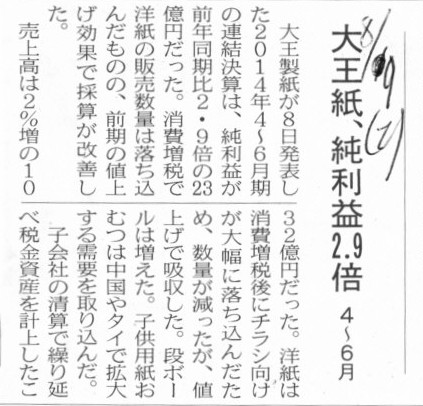 8/9
大王紙、純利益2.9倍 4〜6月
大王製紙が8日発表し
た2014年4〜6月期
の連結決算は、純利益が
前年同期比2・9倍の23
億円だった。消費増税で
洋紙の販売数量は落ち込
んだものの、前期の値上
げ効果で採算が改善し
た。
売上高は2%増の10
32億円だった。洋紙は
消費増税後にチラシ向け
が大幅に落ち込んだた
め、数量が減ったが、値
上げで吸収した。段ボー
ルは増えた。子供用紙お
むつは中国やタイで拡大
する需要を取り込んだ。
子会社の清算で繰り延
べ税金資産を計上したこ